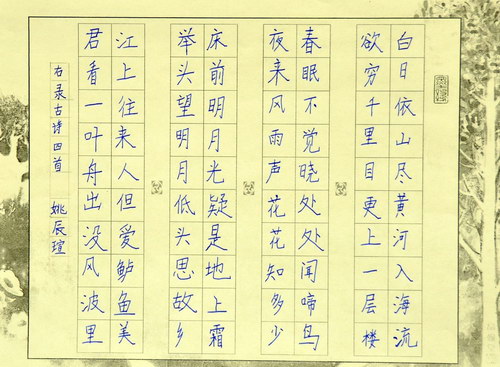 白日依山尽黄河入海流
欲穷千里目更上一层楼
春眠不觉晓处处闻啼鸟
夜来风雨声花花知多少
床前明月光疑是地上霜
举头望明月低头思故乡
江上往来人但爱鲈鱼美
君看一叶舟出没风波里
右录古诗四首 姚辰瑄